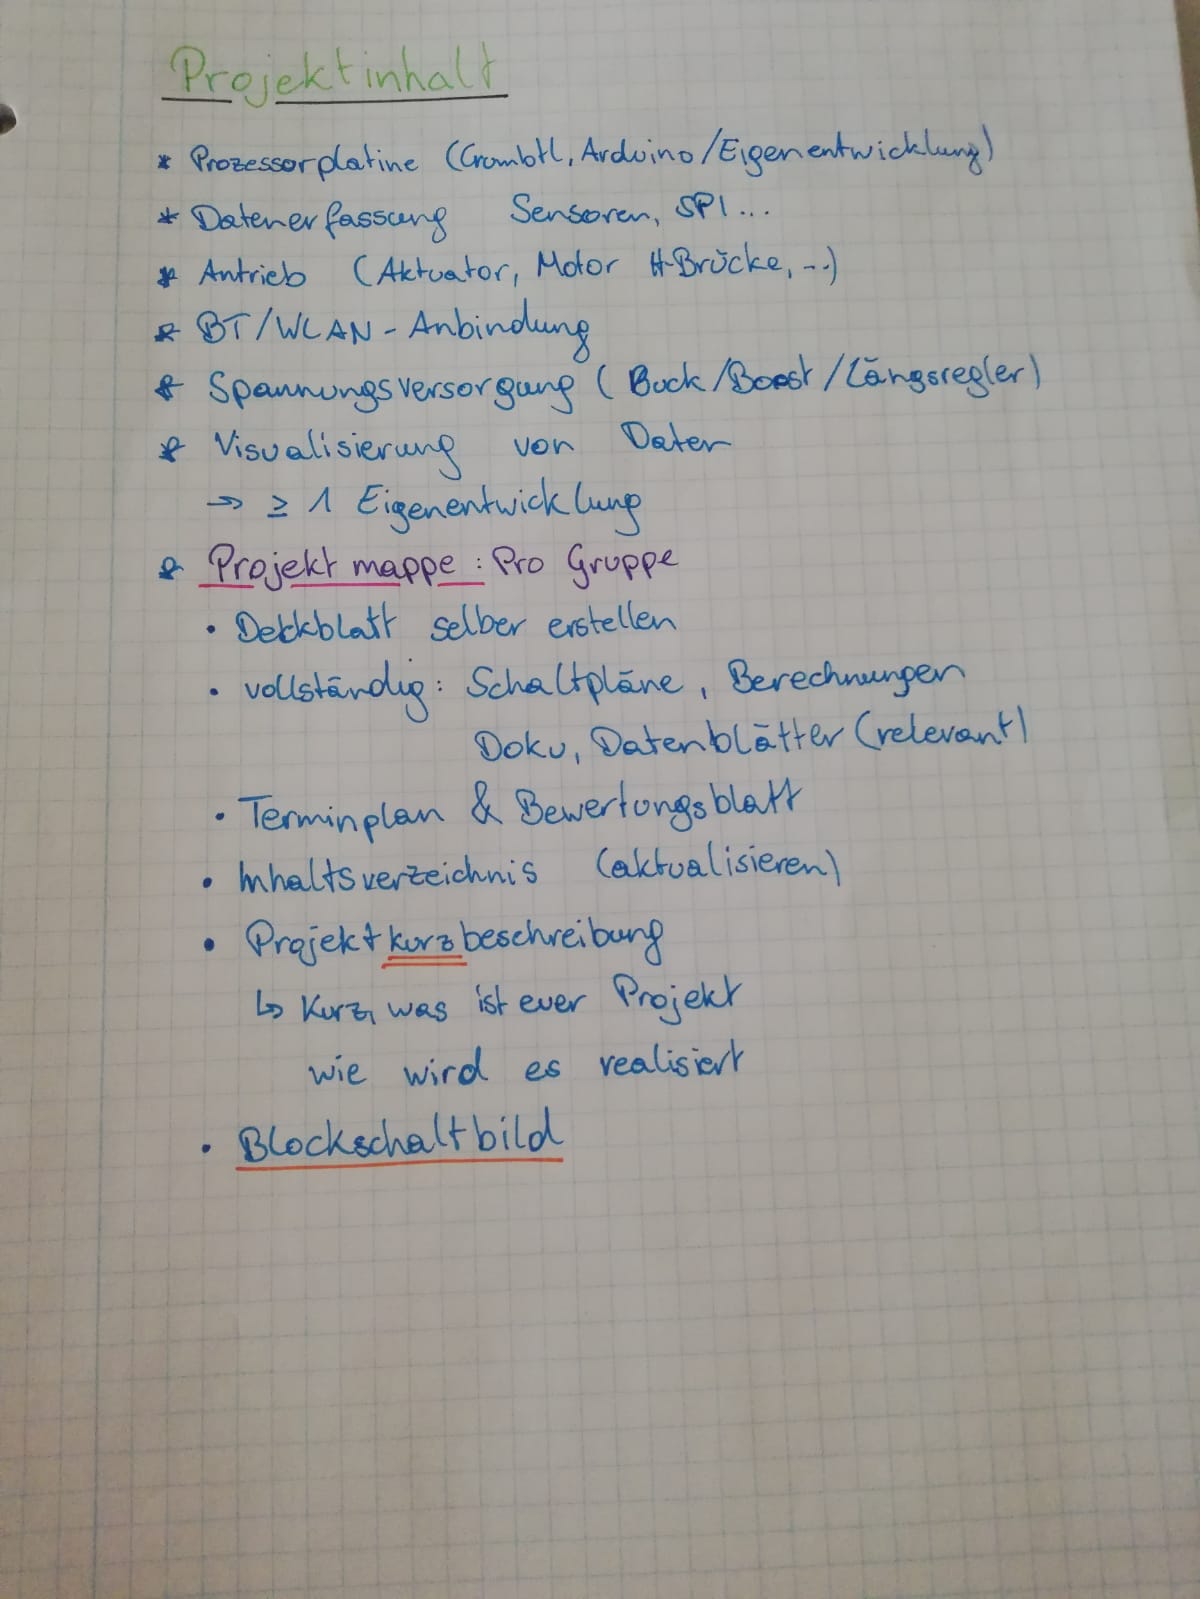 Projektinhalt
* Prozessorplatine (Crumbtl, Arduino/Eigenentwicklung)
* Datenerfassung Sensoren, SPI...
* Antrieb (Aktuator, Motor H-Brücke, ...)
* BT/WLAN-Anbindung
* Spannungsversorgung (Buck/Boost/Längsregler)
* Visualisierung von Daten
→ ≥ 1 Eigenentwicklung
* Projektmappe: Pro Gruppe
• Deckblatt selber erstellen
• vollständig: Schaltpläne, Berechnungen
Doku, Datenblätter (relevant)
• Terminplan & Bewertungsblatt
• Inhaltsverzeichnis (aktualisieren)
• Projektkurzbeschreibung
↳ Kurz, was ist euer Projekt
wie wird es realisiert
• Blockschaltbild